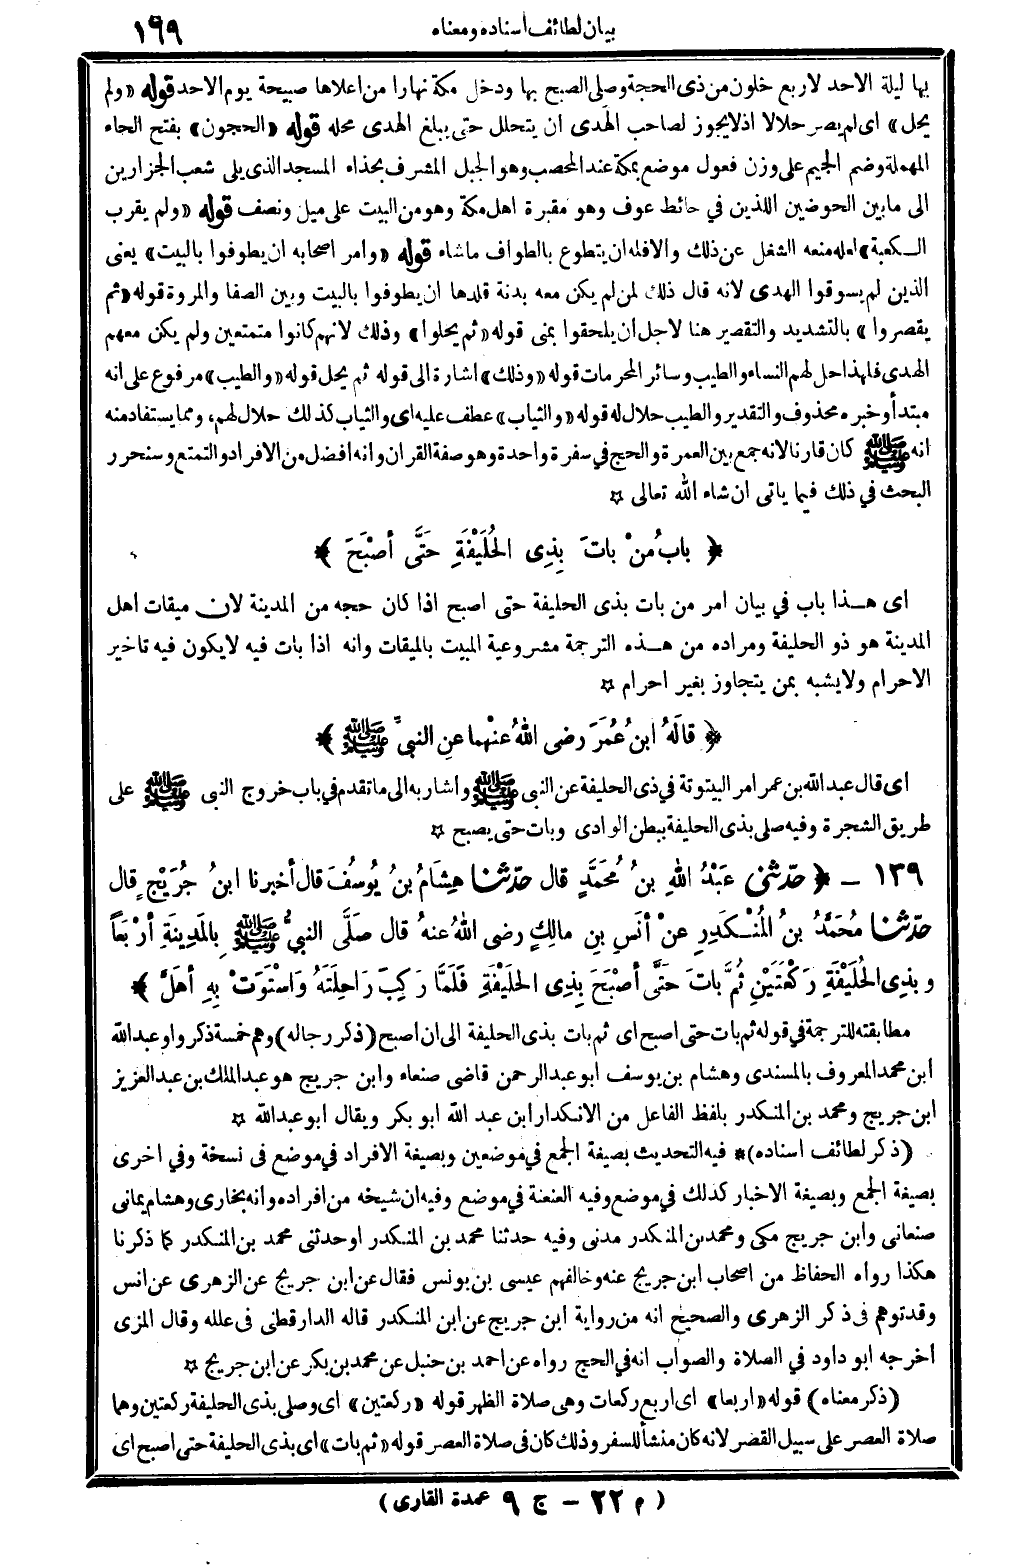 ١٦٩
بيان لطائف اسناده ومعناه
بها ليلة الاحد لاربع خلون من ذى الحجة وصلى الصبح بها ودخل مكة نهارا من اعلاها صبيحة يوم الاحد قوله «ولم
يحل» اى لم يصر حلالا اذلا يجوز لصاحب الهدى ان يتحلل حتى يبلغ الهدى محله قوله «الحجون» بفتح الحاء
المهملة وضم الجيم على وزن فعول موضع بمكة عند المحصب وهو الجبل المشرف بحذاء المسجد الذى يلى شعب الجزارين
الى مابين الحوضين اللذين في حائط عوف وهو مقبرة اهل مكة وهو من البيت على ميل ونصف قوله «ولم يقرب
الكعبة» لعله منعه الشغل عن ذلك والا فله ان يتطوع بالطواف ماشاء قوله «وامر اصحابه ان يطوفوا بالبيت» يعنى
الذين لم يسوقوا الهدى لانه قال ذلك لمن لم يكن معه بدنة قلدها ان يطوفوا بالبيت وبين الصفا والمروة قوله «ثم
يقصروا» بالتشديد والتقصير هنا لاجل ان يلحقوا بمنى قوله «ثم يحلوا» وذلك لانهم كانوا متمتعين ولم يكن معهم
الهدى فلهذا حل لهم النساء والطيب وسائر المحرمات قوله «وذلك» اشارة الى قوله ثم يحل قوله «والطيب» مرفوع على انه
مبتدأ وخبره محذوف والتقدير والطيب حلال له قوله «والثياب» عطف عليه اى والثياب كذلك حلال لهم، ومما يستفاد منه
انه ﷺ كان قارنا لانه جمع بين العمرة والحج في سفرة واحدة وهو صفة القران وانه افضل من الافراد والتمتع وسنحرر
البحث في ذلك فيما ياتى ان شاء الله تعالى ✩
﴿ بابُ مَنْ باتَ بِذِى الحُلَيْفَةِ حَتَّى أصْبَحَ ﴾
اى هذا باب في بيان امر من بات بذى الحليفة حتى اصبح اذا كان حجه من المدينة لان ميقات اهل
المدينة هو ذو الحليفة ومراده من هذه الترجمة مشروعية المبيت بالميقات وانه اذا بات فيه لايكون فيه تاخير
الاحرام ولايشبه بمن يتجاوز بغير احرام ✩
﴿ قالَهُ ابنُ عُمَرَ رضى اللهُ عنْهما عنِ النبيِّ ﷺ ﴾
اى قال عبد الله بن عمر امر البيتوتة في ذى الحليفة عن النبى ﷺ واشار به الى ماتقدم في باب خروج النبى ﷺ على
طريق الشجرة وفيه صلى بذى الحليفة ببطن الوادى وبات حتى يصبح ✩
١٣٩ ــ ﴿ حدّثنى عَبْدُ اللهِ بنُ مُحَمَّدٍ قال حدّثنا هِشامُ بنُ يُوسُفَ قال أخبرنا ابنُ جُرَيْجٍ قال
حدّثنا مُحَمَّدُ بنُ المُنْكَدِرِ عنْ أنَسِ بنِ مالِكٍ رضى اللهُ عنهُ قال صَلَّى النبيُّ ﷺ بِالمَدِينَةِ أرْبَعاً
وبِذِى الحُلَيْفَةِ رَكْعَتَيْنِ ثُمَّ باتَ حَتَّى أصْبَحَ بِذِى الحليفةِ فَلَمَّا رَكِبَ رَاحِلَتَهُ وَاسْتَوَتْ بِهِ أهَلَّ ﴾
مطابقته للترجمة في قوله ثم بات حتى اصبح اى ثم بات بذى الحليفة الى ان اصبح (ذكر رجاله) وهم خمسة ذكروا وعبدالله
ابن محمد المعروف بالمسندى وهشام بن يوسف ابو عبد الرحمن قاضى صنعاء وابن جريج هو عبدالملك بن عبدالعزيز
ابن جريج ومحمد بن المنكدر بلفظ الفاعل من الانكدار ابن عبد الله ابو بكر ويقال ابو عبدالله ✩
(ذكر لطائف اسناده)* فيه التحديث بصيغة الجمع في موضعين وبصيغة الافراد في موضع فى نسخة وفي اخرى
بصيغة الجمع وبصيغة الاخبار كذلك في موضع وفيه العنعنة في موضع وفيه ان شيخه من افراده وانه بخارى وهشام يمانى
صنعانى وابن جريج مكى ومحمد بن المنكدر مدنى وفيه حدثنا محمد بن المنكدر اوحدثنى محمد بن المنكدر كما ذكرنا
هكذا رواه الحفاظ من اصحاب ابن جريج عنه وخالفهم عيسى بن يونس فقال عن ابن جريج عن الزهرى عن انس
وقد توهم فى ذكر الزهرى والصحيح انه من رواية ابن جريج عن ابن المنكدر قاله الدارقطنى فى علله وقال المزى
اخرجه ابو داود في الصلاة والصواب انه في الحج رواه عن احمد بن حنبل عن محمد بن بكر عن ابن جريج ✩
(ذكر معناه) قوله «اربعا» اى اربع ركعات وهى صلاة الظهر قوله «ركعتين» اى وصلى بذى الحليفة ركعتين وهما
صلاة العصر على سبيل القصر لانه كان منشأ للسفر وذلك كان فى صلاة العصر قوله «ثم بات» اى بذى الحليفة حتى اصبح اى
(م ٢٢ ــ ج ٩ عمدة القارى)